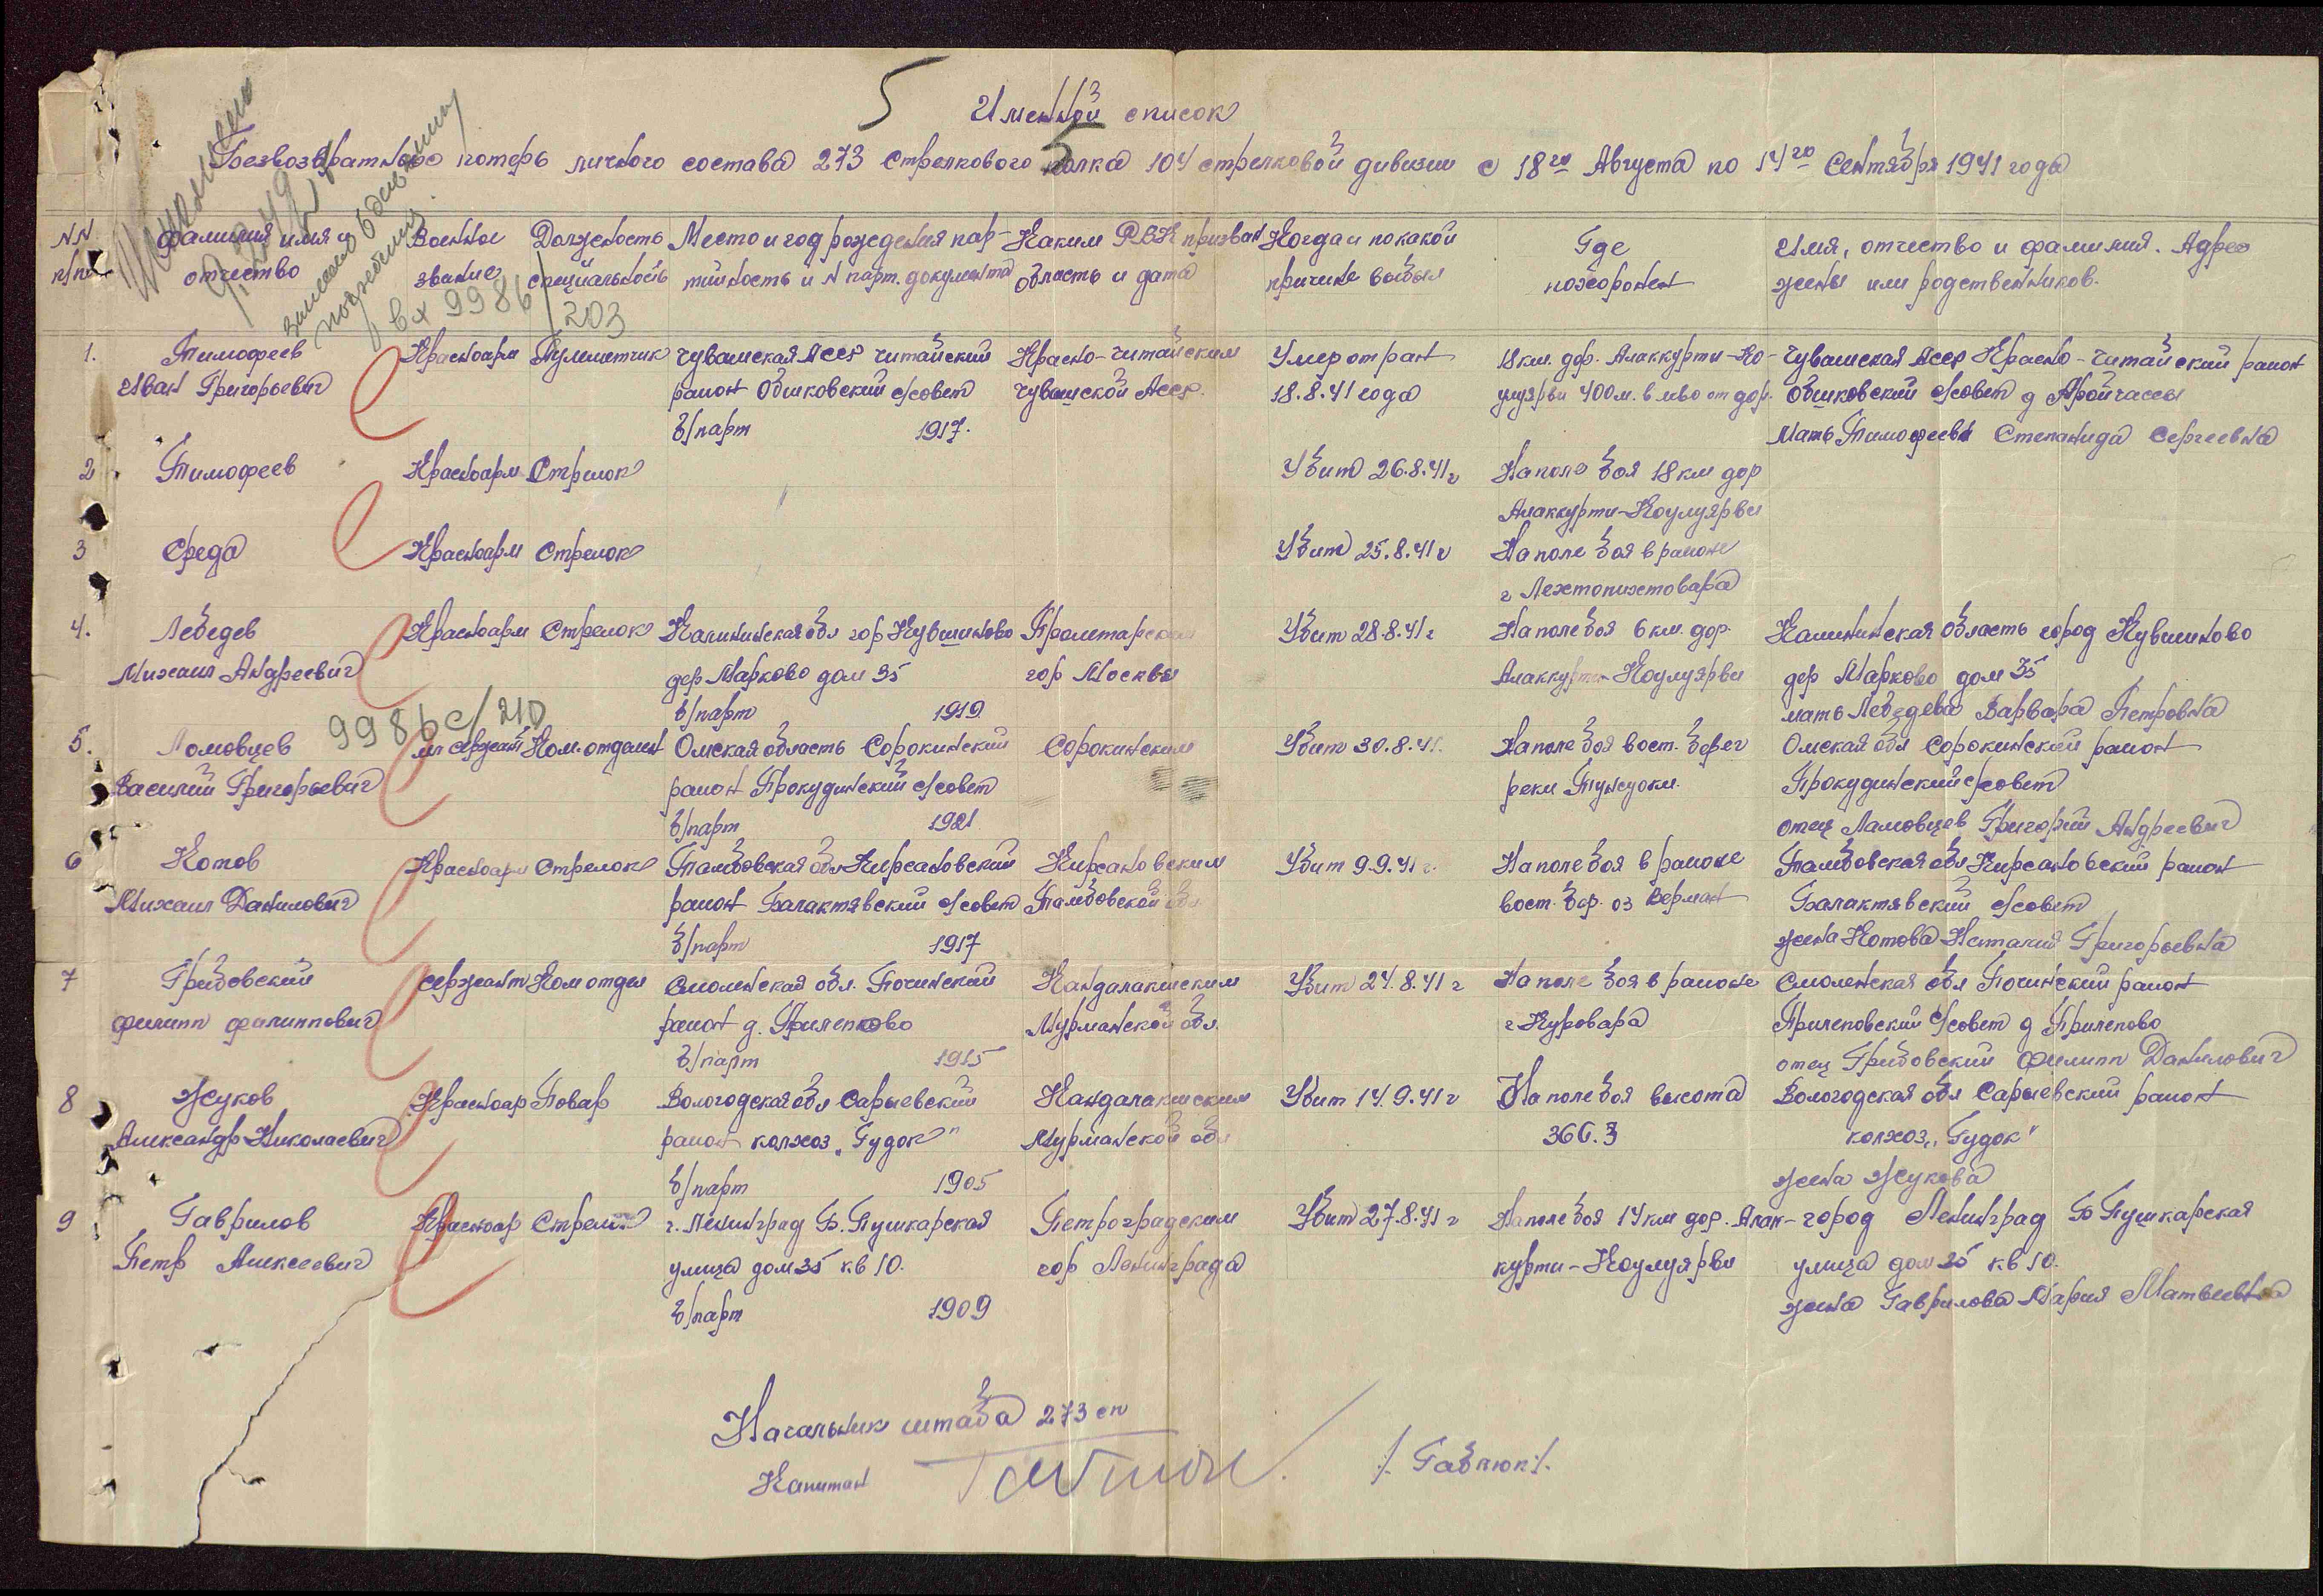 5
Именной список
Безвозвратных потерь личного состава 273 стрелкового полка 104 стрелковой дивизии с 18го Августа по 14го Сентября 1941 года
5
NN п/п
Фамилия имя и отчество
Военное звание
Должность специальность
Место и год рождения партийность и N парт. документа
Каким РВК призван область и дата
Когда и по какой причине выбыл
Где похоронен
Имя, отчество и фамилия. Адрес жены или родственников.
вх 9986/203
1. Тимофеев Красноарм Пулеметчик Чувашская Асср Читайский Красно-Читайским Умер от ран 18 км. дор. Алаккурти-Ко- Чувашская Асср Красно-Читайский район
Иван Григорьевич район Обшковский с/совет Чувашской Асср. 18.8.41 года улуярви 400 м. влево от дор. Обшковский с/совет д
б/парт 1917. Мать Тимофеева Степанида Сергеевна
2 Тимофеев Красноарм Стрелок Убит 26.8.41 г На поле боя 18 км дор
Алаккурти-Коулуярви
3 Среда Красноарм Стрелок Убит 25.8.41 г На поле боя в районе
г Лехтопихтовара
4. Лебедев Красноарм Стрелок Калининская обл гор Кувшиново Пролетарским Убит 28.8.41 г На поле боя 6 км. дор. Калининская область город Кувшиново
Михаил Андреевич дер Марково дом 35 гор Москвы Алаккурти-Коулуярви дер Марково дом 35
б/парт 1919 мать Лебедева Варвара Петровна
9986с/210
5. Ломовцев мл сержант Ком. отделен Омская область Сорокинский Сорокинским Убит 30.8.41. На поле боя вост. берег Омская обл Сорокинский район
Василий Григорьевич район Прокудинский с/совет реки Тунтуоки. Прокудинский с/совет
б/парт 1921 отец Ламовцев Григорий Андреевич
6 Котов Красноарм Стрелок Тамбовская обл Кирсановский Кирсановским Убит 9.9.41 г. На поле боя в районе Тамбовская обл Кирсановский район
Михаил Данилович район Балактявский с/совет Тамбовской обл вост. бер. оз Верман Балактявский с/совет
б/парт 1917 жена Котова Наталия Григорьевна
7 Грибовский сержант Ком отдел Смоленская обл. Починский Кандалакшским Убит 24.8.41 г На поле боя в районе Смоленская обл Починский район
Филипп Филиппович район д. Прилепково Мурманской обл. г Куровара Прилеповский с/совет д Прилепово
б/парт 1915 отец Грибовский Филипп Данилович
8 Жуков Красноар Повар Вологодская обл Сарыевский Кандалакшским Убит 14.9.41 г На поле боя высота Вологодская обл Сарыевский район
Александр Николаевич район колхоз „Гудок" Мурманской обл 366.3 колхоз „Гудок"
б/парт 1905 жена Жукова
9 Гаврилов Красноар Стрелок г. Ленинград Б. Пушкарская Петроградским Убит 27.8.41 г На поле боя 14 км дор. Алак- город Ленинград Б Пушкарская
Петр Алексеевич улица дом 35 кв 10. гор Ленинграда курти-Коулуярви улица дом 35 кв 10.
б/парт 1909 жена Гаврилова Мария Матвеевна
Начальник штаба 273 сп
Капитан /. Габпюк /.